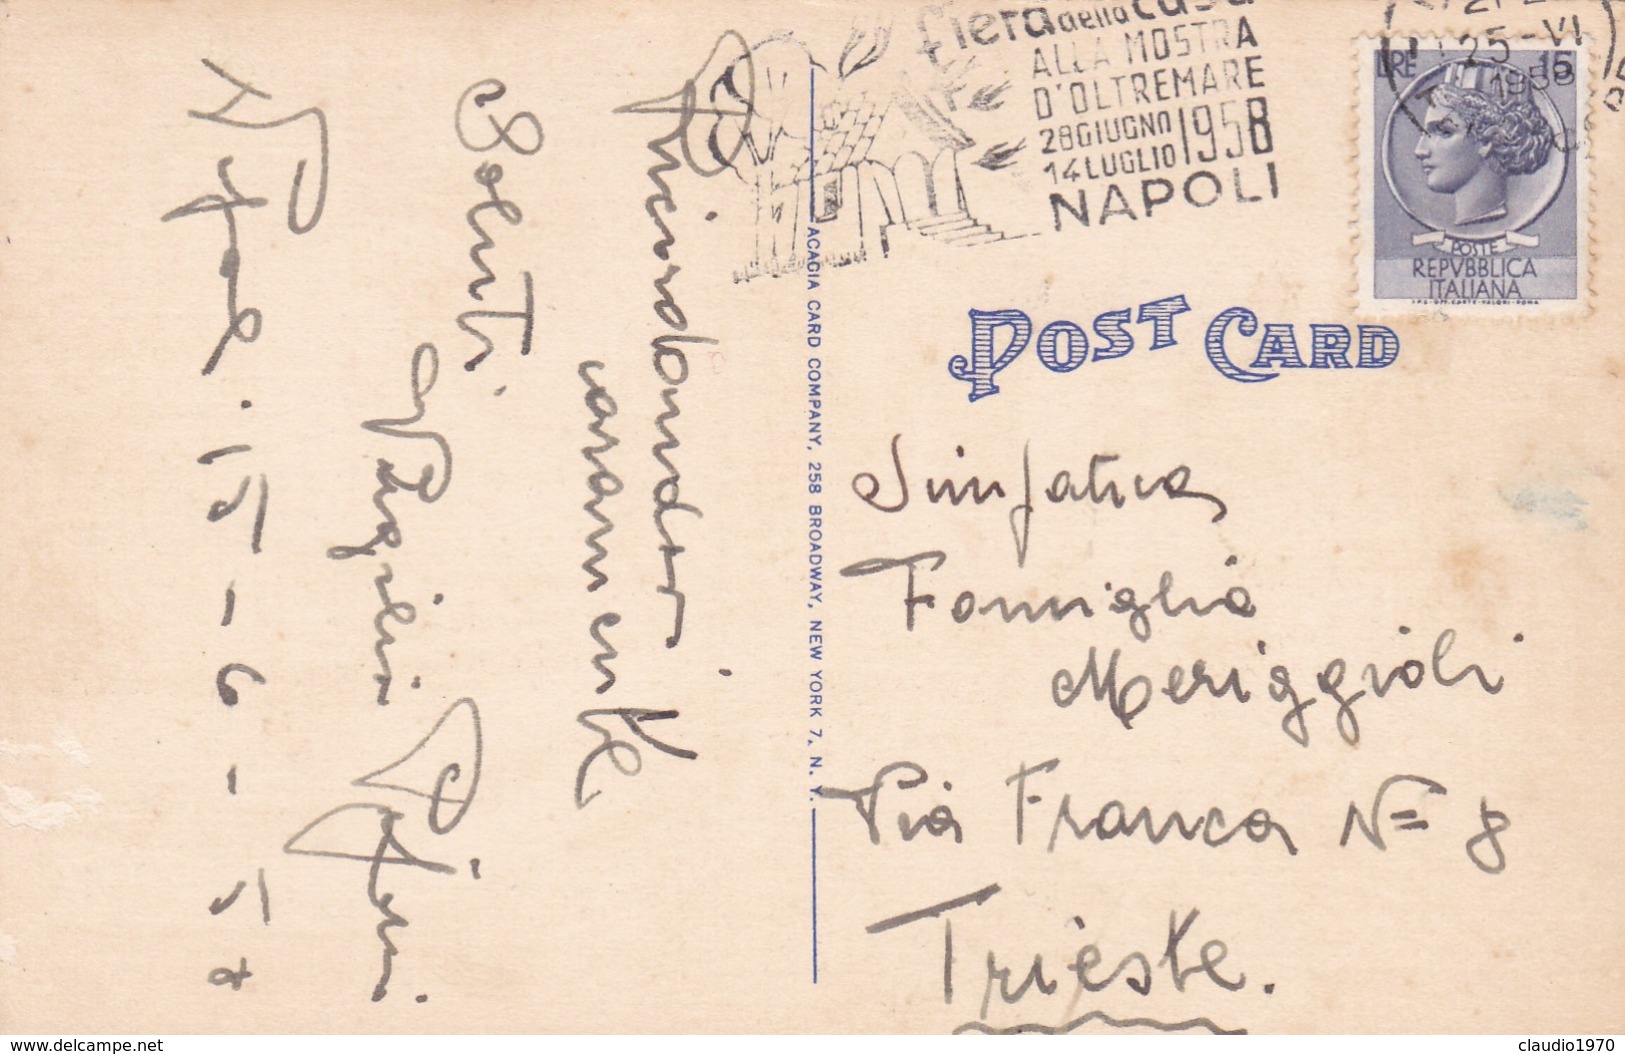 Ricordandovi
caramente
Saluti
Napoli. 15-6-58
ACACIA CARD COMPANY, 258 BROADWAY, NEW YORK 7, N. Y.
fiera della casa
ALLA MOSTRA
D'OLTREMARE
28 GIUGNO
14 LUGLIO 1958
NAPOLI
25-VI
1958
LIRE 15
POSTE
REPVBBLICA
ITALIANA
I.P.S.-OFF. CARTE-VALORI-ROMA
POST CARD
Simpatica
Famiglia
Meriggioli
Via Franca N= 8
Trieste.
www.delcampe.net
claudio1970